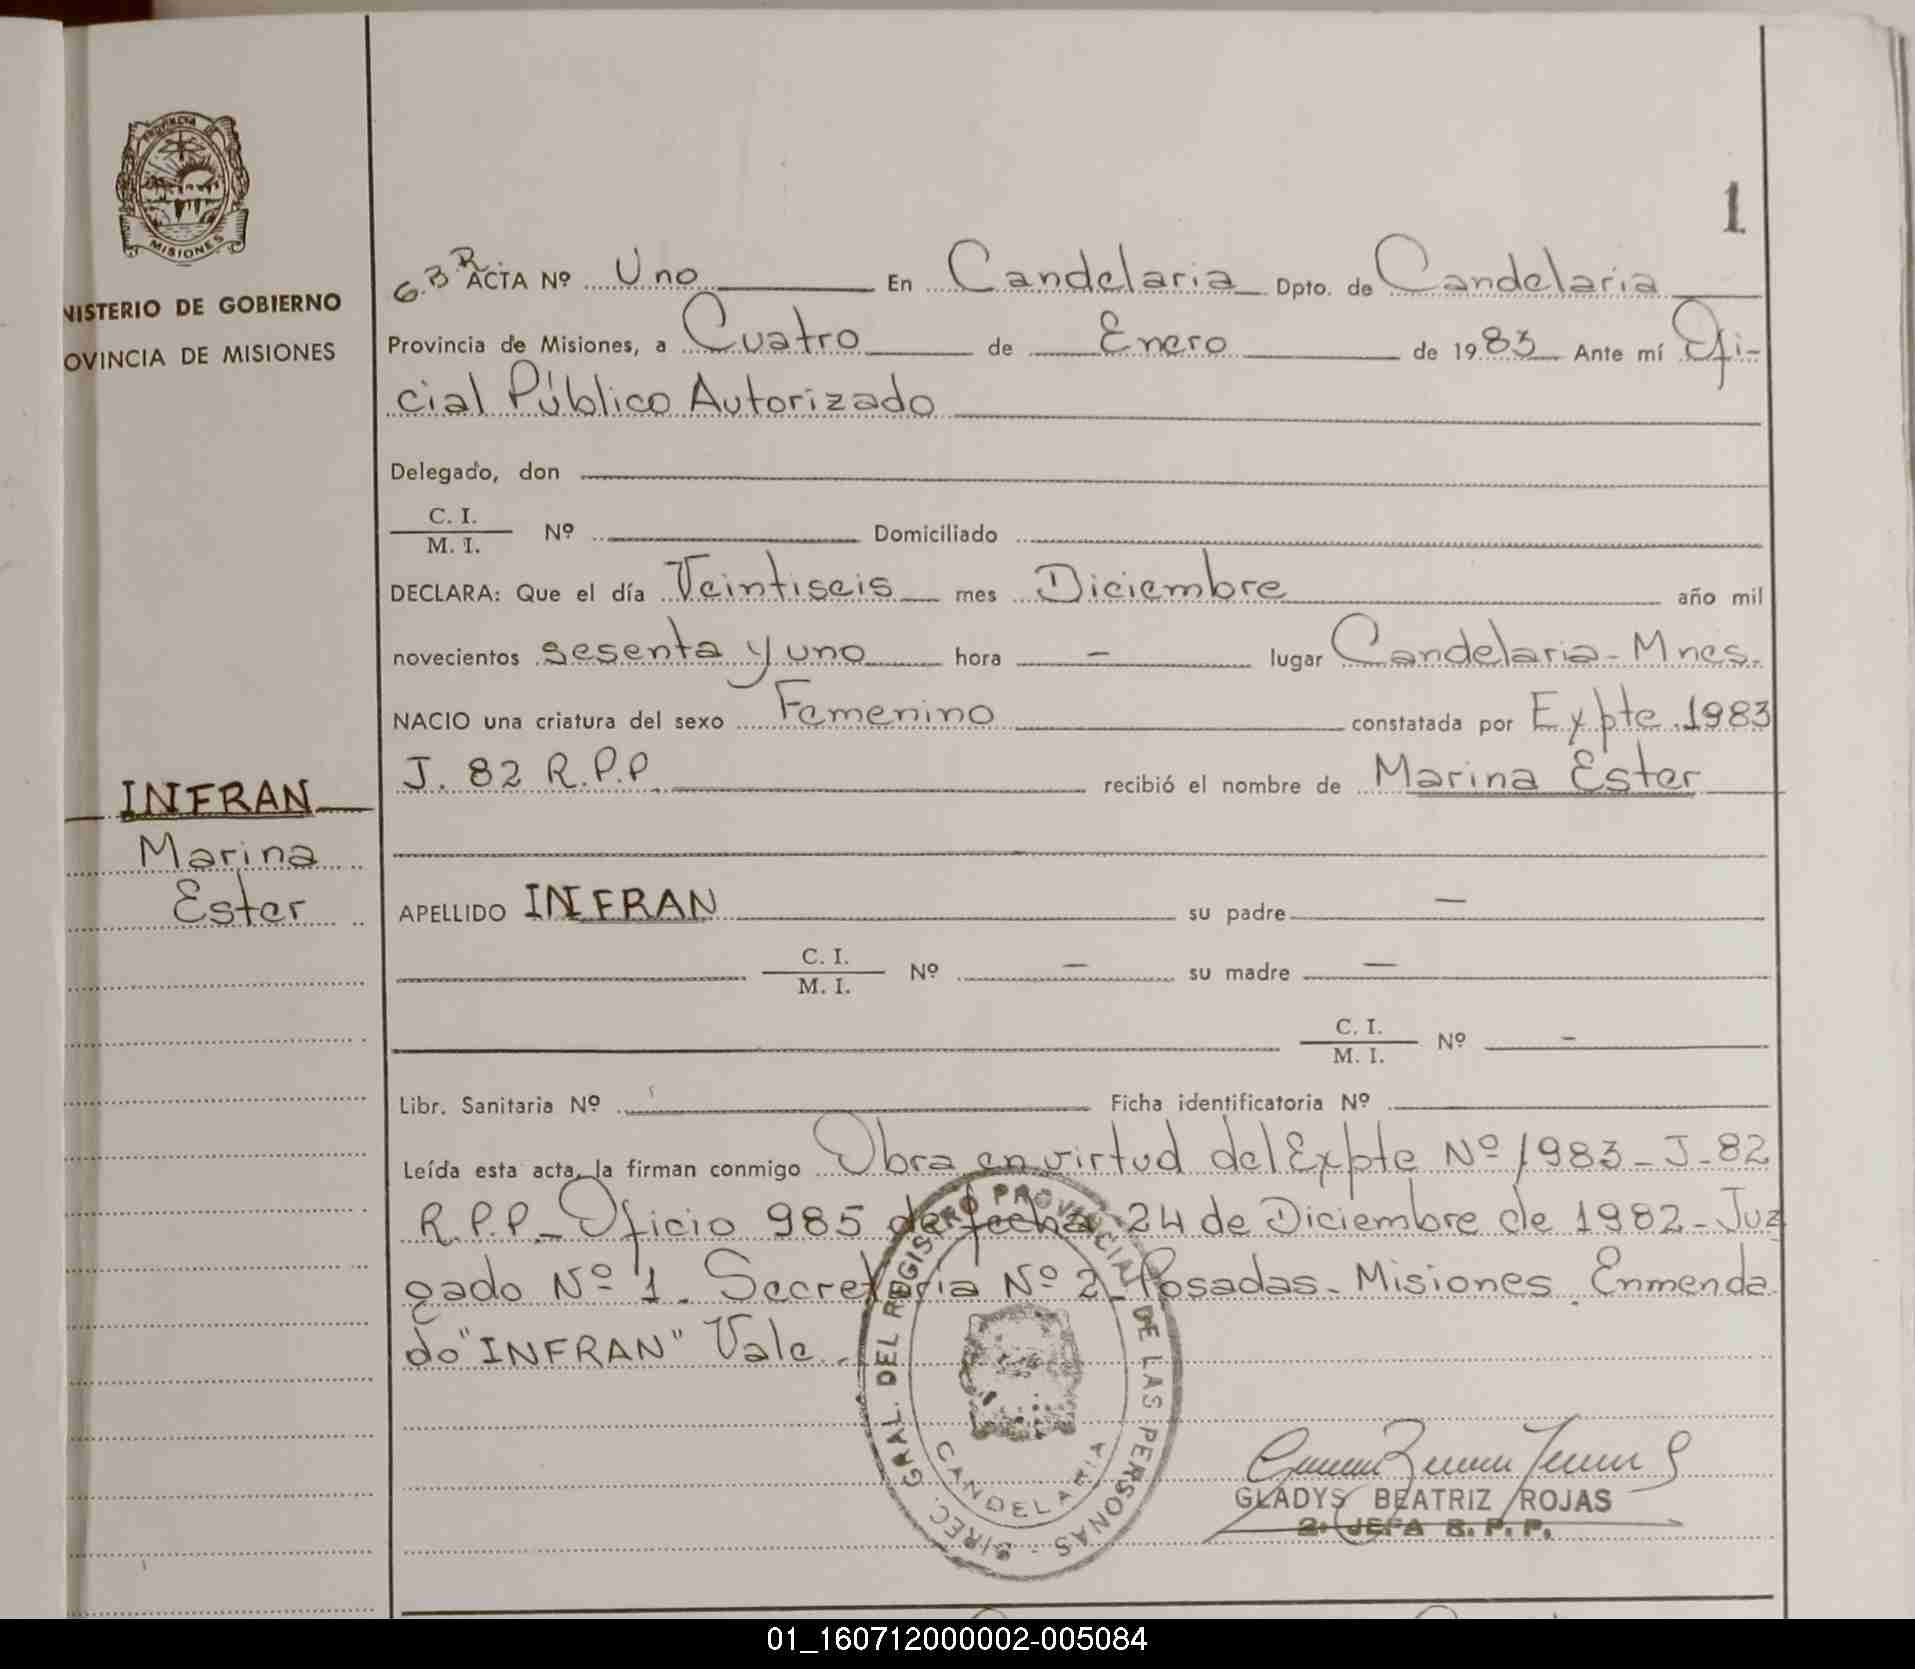 PROVINCIA DE
MISIONES
NISTERIO DE GOBIERNO
OVINCIA DE MISIONES
1
G.B.R. ACTA Nº Uno En Candelaria Dpto. de Candelaria
Provincia de Misiones, a Cuatro de Enero de 1983 Ante mí Ofi-
cial Público Autorizado
Delegado, don
C. I.
M. I. Nº Domiciliado
DECLARA: Que el día Veintiseis mes Diciembre año mil
novecientos sesenta y uno hora - lugar Candelaria - Mnes.
NACIO una criatura del sexo Femenino constatada por Expte. 1983
J. 82 R.P.P. recibió el nombre de Marina Ester
INFRAN
Marina
Ester
APELLIDO INFRAN su padre —
C. I.
M. I. Nº - su madre —
C. I.
M. I. Nº -
Libr. Sanitaria Nº Ficha identificatoria Nº
Leída esta acta, la firman conmigo Obra en virtud del Expte Nº 1983 - J - 82
R.P.P. - Oficio 985 de fecha 24 de Diciembre de 1982 - Juz
gado Nº 1. Secretaria Nº 2 - Posadas - Misiones. Enmenda
do "INFRAN" Vale.
DIREC. GRAL. DEL REGISTRO PROVINCIAL DE LAS PERSONAS -
CANDELARIA
GLADYS BEATRIZ ROJAS
2º JEFA R. P. P.
01_160712000002-005084